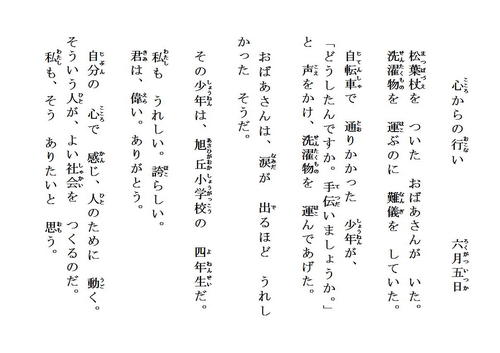 心からの行い　　六月五日
松葉杖を　ついた　おばあさんが　いた。
洗濯物を　運ぶのに　難儀を　していた。
自転車で　通りかかった　少年が、
「どうしたんですか。手伝いましょうか。」
と　声をかけ、洗濯物を　運んであげた。
おばあさんは、涙が　出るほど　うれし
かった　そうだ。
その少年は、旭丘小学校の　四年生だ。
私も　うれしい。誇らしい。
君は、偉い。ありがとう。
自分の　心で　感じ、人のために　動く。
そういう人が、よい社会を　つくるのだ。
私も、そう　ありたいと　思う。